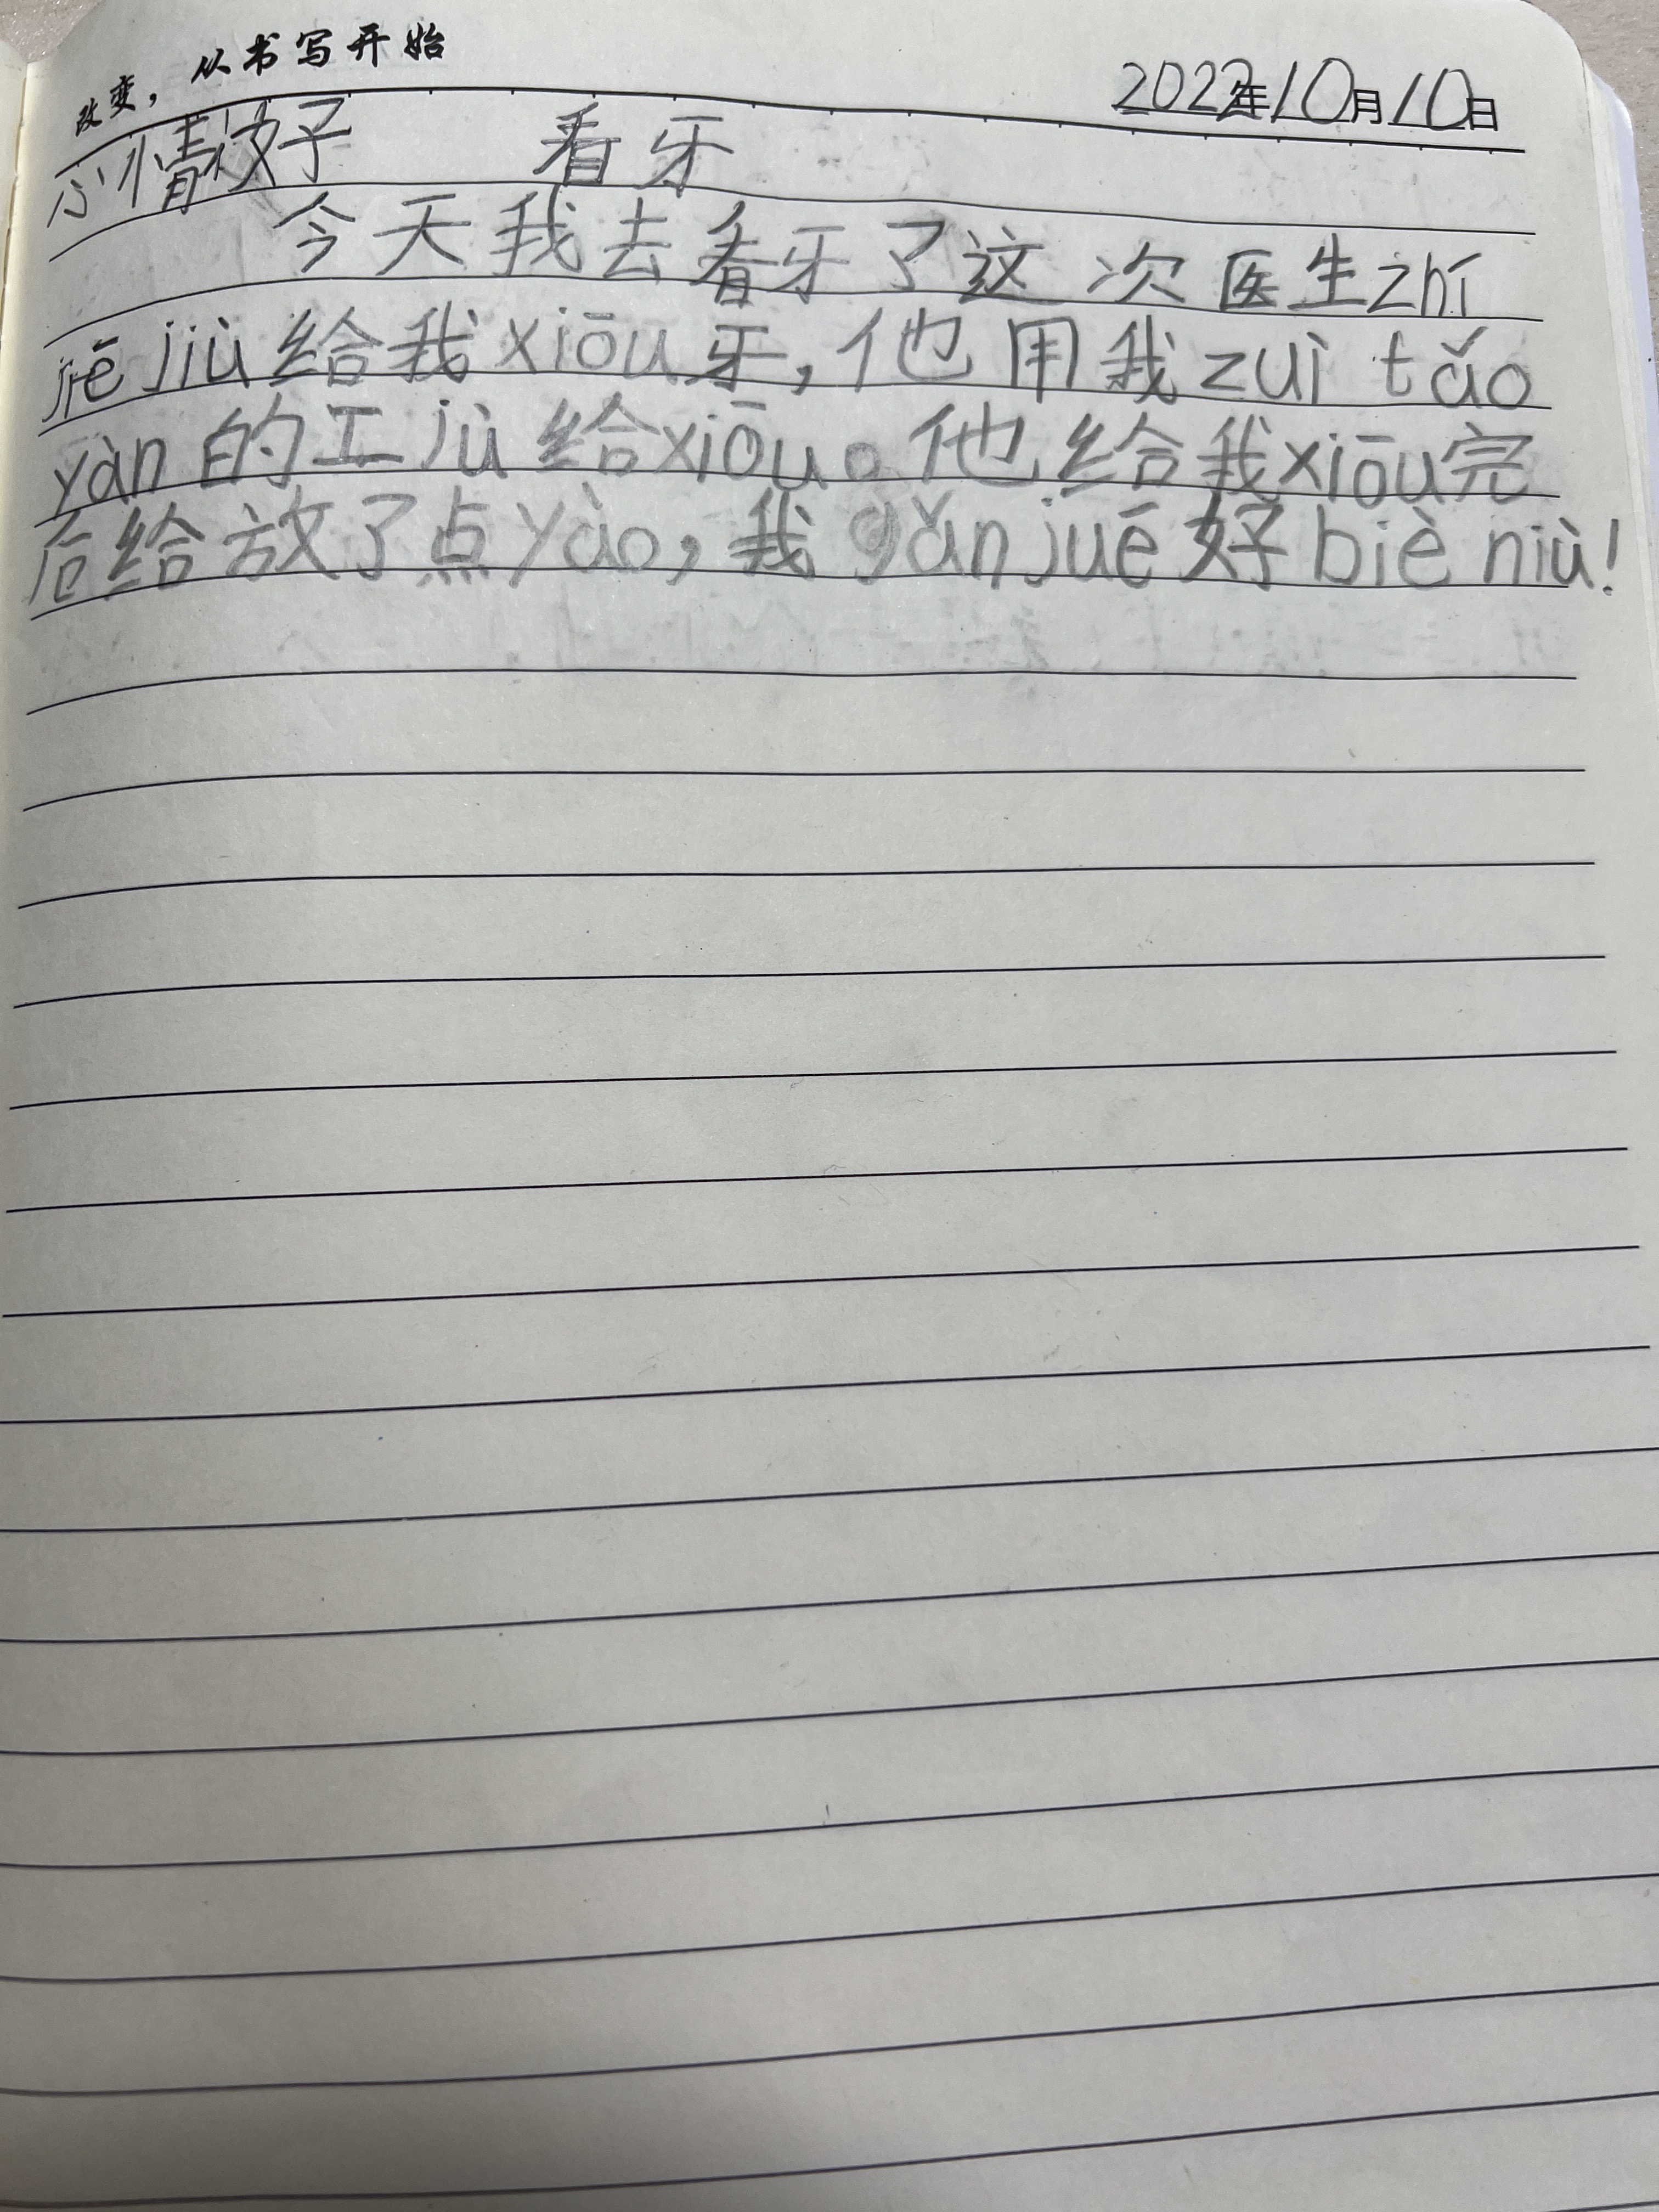 改变，从书写开始
2022年10月10日
心情好 看牙
今天我去看牙了这次医生zhí
jiē jiù给我xiōu牙，他用我zuì tǎo
yàn的工jù给xiōu。他给我xiōu完
后给放了点yào，我gǎn juē好biè niù！